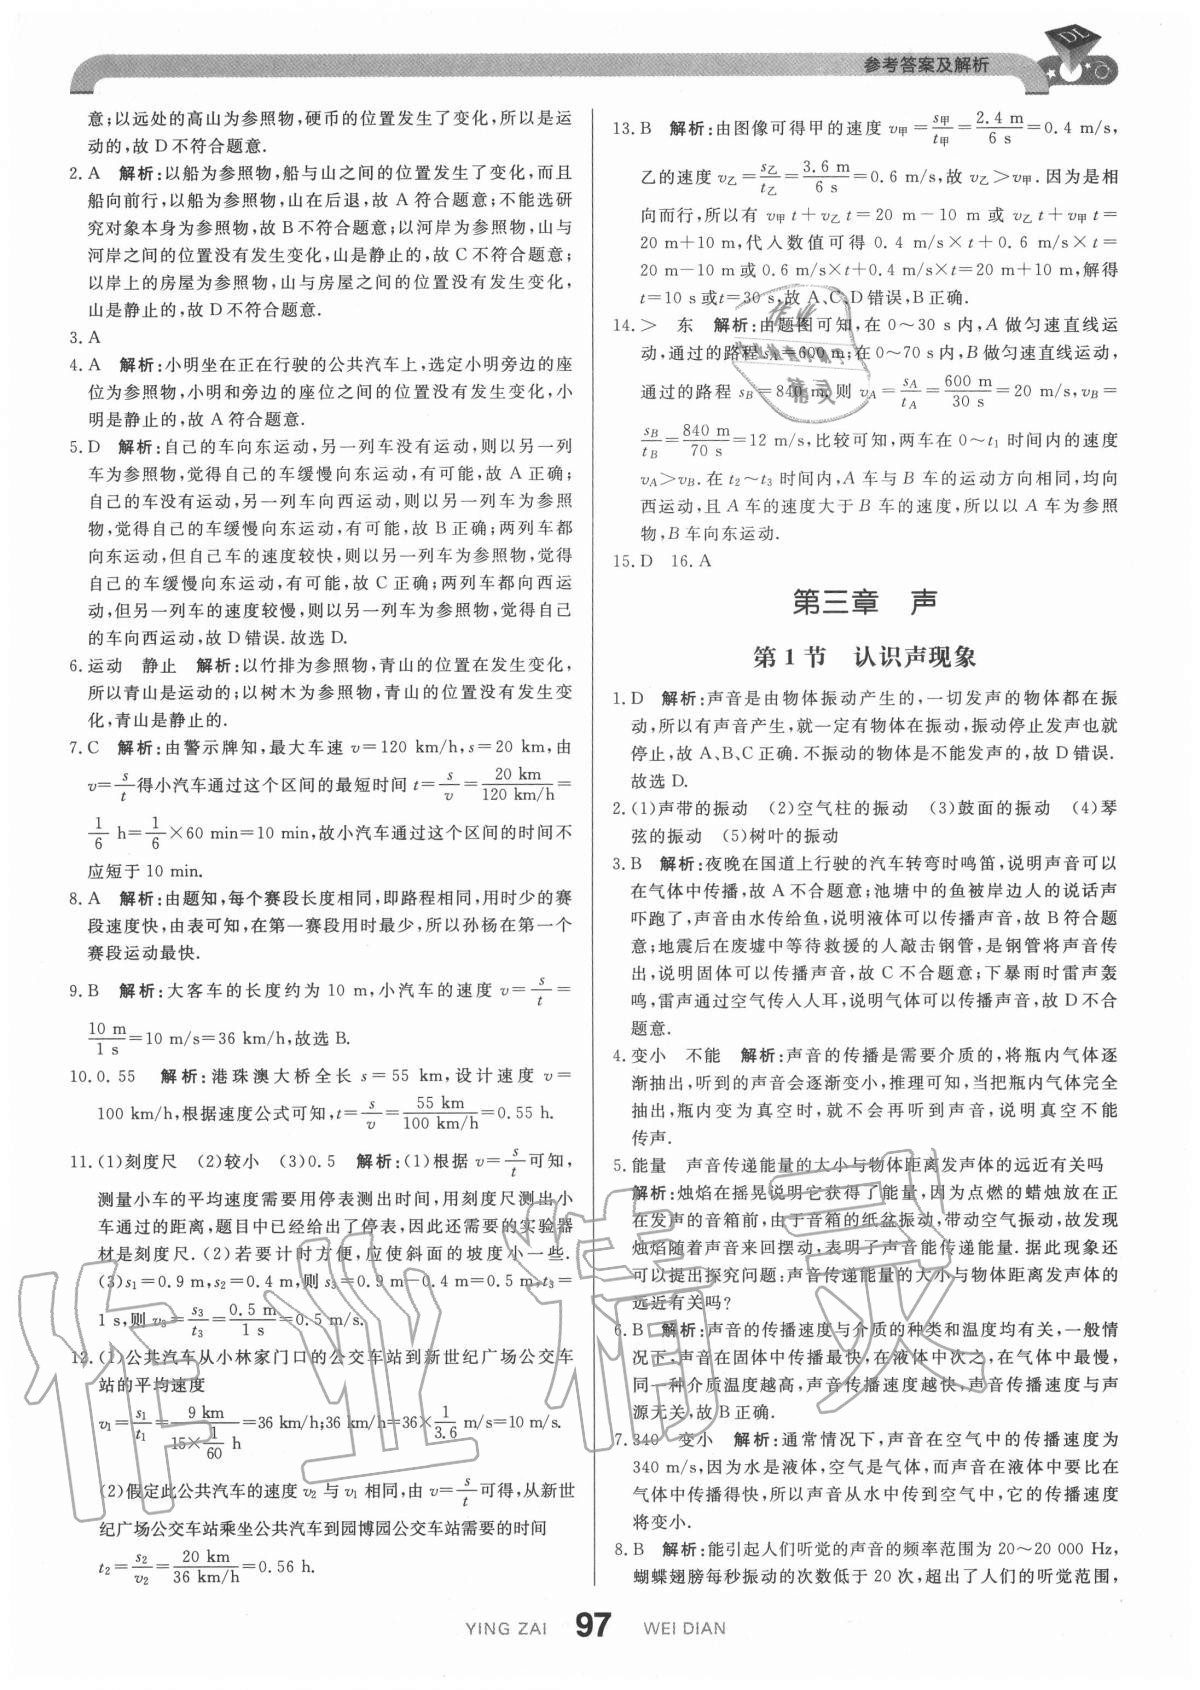 参考答案及解析
DL
意;以远处的高山为参照物,硬币的位置发生了变化,所以是运
动的,故 D 不符合题意.
2. A 解析:以船为参照物,船与山之间的位置发生了变化,而且
船向前行,以船为参照物,山在后退,故 A 符合题意;不能选研
究对象本身为参照物,故 B 不符合题意;以河岸为参照物,山与
河岸之间的位置没有发生变化,山是静止的,故 C 不符合题意;
以岸上的房屋为参照物,山与房屋之间的位置没有发生变化,
山是静止的,故 D 不符合题意.
3. A
4. A 解析:小明坐在正在行驶的公共汽车上,选定小明旁边的座
位为参照物,小明和旁边的座位之间的位置没有发生变化,小
明是静止的,故 A 符合题意.
5. D 解析:自己的车向东运动,另一列车没有运动,则以另一列
车为参照物,觉得自己的车缓慢向东运动,有可能,故 A 正确;
自己的车没有运动,另一列车向西运动,则以另一列车为参照
物,觉得自己的车缓慢向东运动,有可能,故 B 正确;两列车都
向东运动,但自己车的速度较快,则以另一列车为参照物,觉得
自己的车缓慢向东运动,有可能,故 C 正确;两列车都向西运
动,但另一列车的速度较慢,则以另一列车为参照物,觉得自己
的车向西运动,故 D 错误.故选 D.
6. 运动 静止 解析:以竹排为参照物,青山的位置在发生变化,
所以青山是运动的;以树木为参照物,青山的位置没有发生变
化,青山是静止的.
7. C 解析:由警示牌知,最大车速 v=120 km/h,s=20 km,由
v=s/t得小汽车通过这个区间的最短时间 t=s/v=20 km/120 km/h=
1/6 h=1/6×60 min=10 min,故小汽车通过这个区间的时间不
应短于 10 min.
8. A 解析:由题知,每个赛段长度相同,即路程相同,用时少的赛
段速度快,由表可知,在第一赛段用时最少,所以孙杨在第一个
赛段运动最快.
9. B 解析:大客车的长度约为 10 m,小汽车的速度 v=s/t=
10 m/1 s=10 m/s=36 km/h,故选 B.
10. 0.55 解析:港珠澳大桥全长 s=55 km,设计速度 v=
100 km/h,根据速度公式可知,t=s/v=55 km/100 km/h=0.55 h.
11. (1)刻度尺 (2)较小 (3)0.5 解析:(1)根据 v=s/t可知,
测量小车的平均速度需要用停表测出时间,用刻度尺测出小
车通过的距离,题目中已经给出了停表,因此还需要的实验器
材是刻度尺.(2)若要计时方便,应使斜面的坡度小一些.
(3)s1=0.9 m,s2=0.4 m,则 s3=0.9 m-0.4 m=0.5 m,t3=
1 s,则 v3=s3/t3=0.5 m/1 s=0.5 m/s.
12. (1)公共汽车从小林家门口的公交车站到新世纪广场公交车
站的平均速度
v1=s1/t1=9 km/(15×1/60 h)=36 km/h;36 km/h=36×1/3.6 m/s=10 m/s.
(2)假定此公共汽车的速度 v2 与 v1 相同,由 v=s/t可得,从新世
纪广场公交车站乘坐公共汽车到园博园公交车站需要的时间
t2=s2/v2=20 km/36 km/h=0.56 h.
13. B 解析:由图像可得甲的速度 v甲=s甲/t甲=2.4 m/6 s=0.4 m/s,
乙的速度 v乙=s乙/t乙=3.6 m/6 s=0.6 m/s,故 v乙>v甲.因为是相
向而行,所以有 v甲t+v乙t=20 m-10 m 或 v乙t+v甲t=
20 m+10 m,代入数值可得 0.4 m/s×t+0.6 m/s×t=
20 m-10 m 或 0.6 m/s×t+0.4 m/s×t=20 m+10 m,解得
t=10 s 或t=30 s,故 A、C、D 错误,B 正确.
14. > 东 解析:由题图可知,在 0~30 s 内,A 做匀速直线运
动,通过的路程 sA=600 m;在 0~70 s 内,B 做匀速直线运动,
通过的路程 sB=840 m,则 vA=sA/tA=600 m/30 s=20 m/s,vB=
sB/tB=840 m/70 s=12 m/s,比较可知,两车在 0~t1 时间内的速度
vA>vB.在 t2~t3 时间内,A 车与 B 车的运动方向相同,均向
西运动,且 A 车的速度大于 B 车的速度,所以以 A 车为参照
物,B 车向东运动.
15. D 16. A
第三章 声
第 1 节 认识声现象
1. D 解析:声音是由物体振动产生的,一切发声的物体都在振
动,所以有声音产生,就一定有物体在振动,振动停止发声也就
停止,故 A、B、C 正确.不振动的物体是不能发声的,故 D 错误.
故选 D.
2. (1)声带的振动 (2)空气柱的振动 (3)鼓面的振动 (4)琴
弦的振动 (5)树叶的振动
3. B 解析:夜晚在国道上行驶的汽车转弯时鸣笛,说明声音可以
在气体中传播,故 A 不合题意;池塘中的鱼被岸边人的说话声
吓跑了,声音由水传给鱼,说明液体可以传播声音,故 B 符合题
意;地震后在废墟中等待救援的人敲击钢管,是钢管将声音传
出,说明固体可以传播声音,故 C 不合题意;下暴雨时雷声轰
鸣,雷声通过空气传入人耳,说明气体可以传播声音,故 D 不合
题意.
4. 变小 不能 解析:声音的传播是需要介质的,将瓶内气体逐
渐抽出,听到的声音会逐渐变小,推理可知,当把瓶内气体完全
抽出,瓶内变为真空时,就不会再听到声音,说明真空不能
传声.
5. 能量 声音传递能量的大小与物体距离发声体的远近有关吗
解析:烛焰在摇晃说明它获得了能量,因为点燃的蜡烛放在正
在发声的音箱前,由于音箱的纸盆振动,带动空气振动,故发现
烛焰随着声音来回摆动,表明了声音能传递能量.据此现象还
可以提出探究问题:声音传递能量的大小与物体距离发声体的
远近有关吗?
6. B 解析:声音的传播速度与介质的种类和温度均有关,一般情
况下,声音在固体中传播最快,在液体中次之,在气体中最慢,
同一种介质温度越高,声音传播速度越快,声音的传播速度与声
源无关,故 B 正确.
7. 340 变小 解析:通常情况下,声音在空气中的传播速度为
340 m/s,因为水是液体,空气是气体,而声音在液体中要比在
气体中传播得快,所以声音从水中传到空气中,它的传播速度
将变小.
8. B 解析:能引起人们听觉的声音的频率范围为 20~20 000 Hz,
蝴蝶翅膀每秒振动的次数低于 20 次,超出了人们的听觉范围,
YING ZAI 97 WEI DIAN
作业精灵